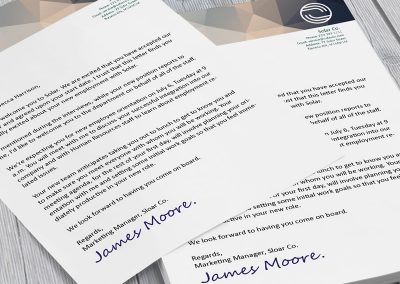 Solar Co.
ecca Harrison,
elcome you to Solar. We are excited that you have accepted our
and agreed upon your start date. I trust that this letter finds you
ally excited about your new employment with Solar.
mentioned during the interviews, while your new position reports to
e, I'd like to welcome You to the department on behalf of all of the staff.
We're expecting you for new employee orientation on July 6, Tuesday at 9
a.m. You will meet with me to discuss your successful integration into our
company and with Human Resources staff to learn about employment re-
lated issues.
Your new team anticipates taking you out to lunch to get to know you and
to make sure you meet everyone with whom you will be working. Your
meeting agenda, for the rest of your first day, will involve planning your ori-
entation with me and setting some initial work goals so that you feel imme-
diately productive in your new role.
We look forward to having you come on board.
Regards,
Marketing Manager, Sloar Co.
James Moore.
Solar Co.
ed that you have accepted
ust that this letter
with Solar.
position reports to
behalf of all of the staff.
n July 6, Tuesday at 9
integration into our
t employment re-
lunch to get to know you and
whom you will be working. Your
of your first day, will involve planning your
setting some initial work goals so that you feel
in your new role.
We look forward to having you come on board.
Regards,
Marketing Manager, Sloar Co.
James Moore.